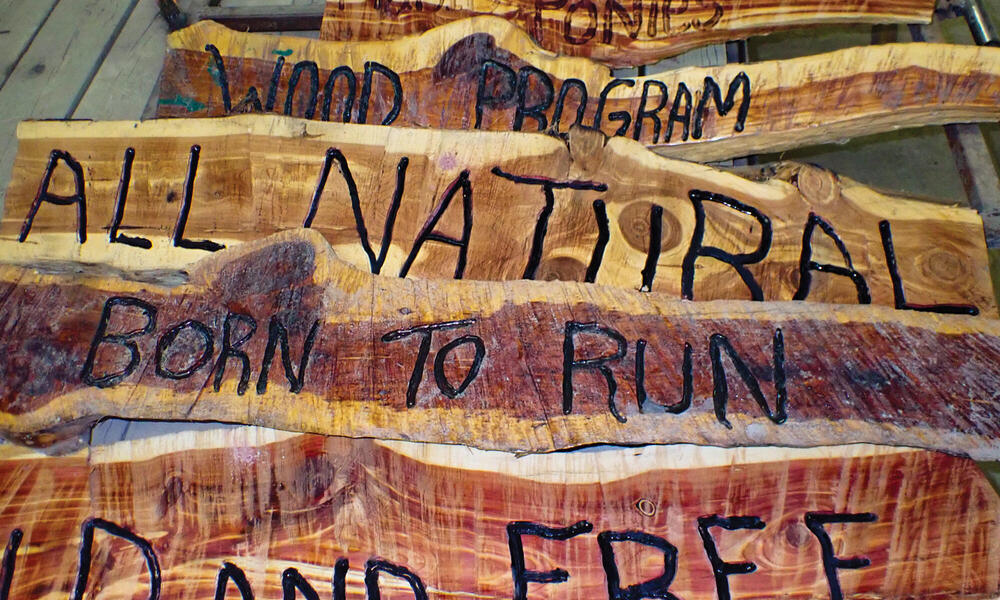 PONIES
WOOD PROGRAM
ALL NATURAL
BORN TO RUN
AND FREE